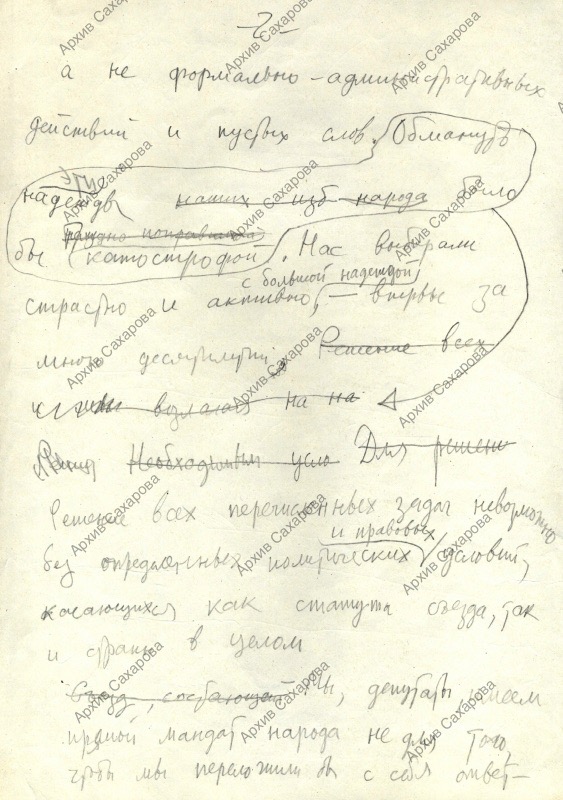 -2-
а не формально-административных
действий и пустых слов. Обмануть
эти
надежды наших изб народа было
трудно поправимой
бы катострофой. Нас выбрали
с большой надеждой,
страстно и активно, — впервые за
много десятилетий. Решение всех
возлагая на на
Необходимым усло Для решени
Решение всех перечисленных задач невозможно
и правовых
без определенных политических условий,
касающихся как статута съезда, так
и страны в целом
Съезд, Мы, депутаты имеем
прямой мандат народа не для того,
чтобы мы переложили бы с себя ответ-
Архив Сахарова